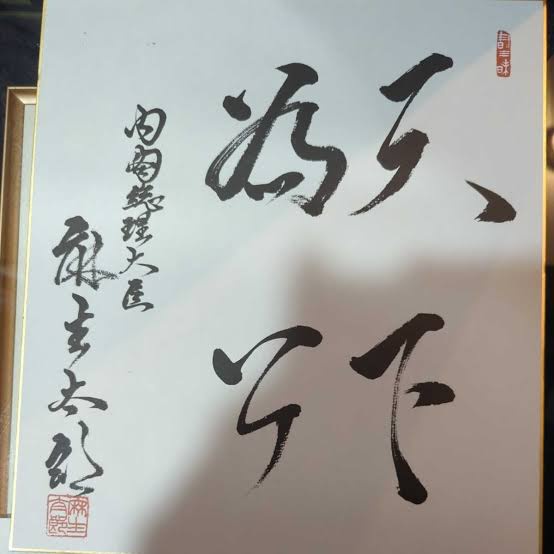 天下
為公
内閣総理大臣
麻生太郎
麻生太郎